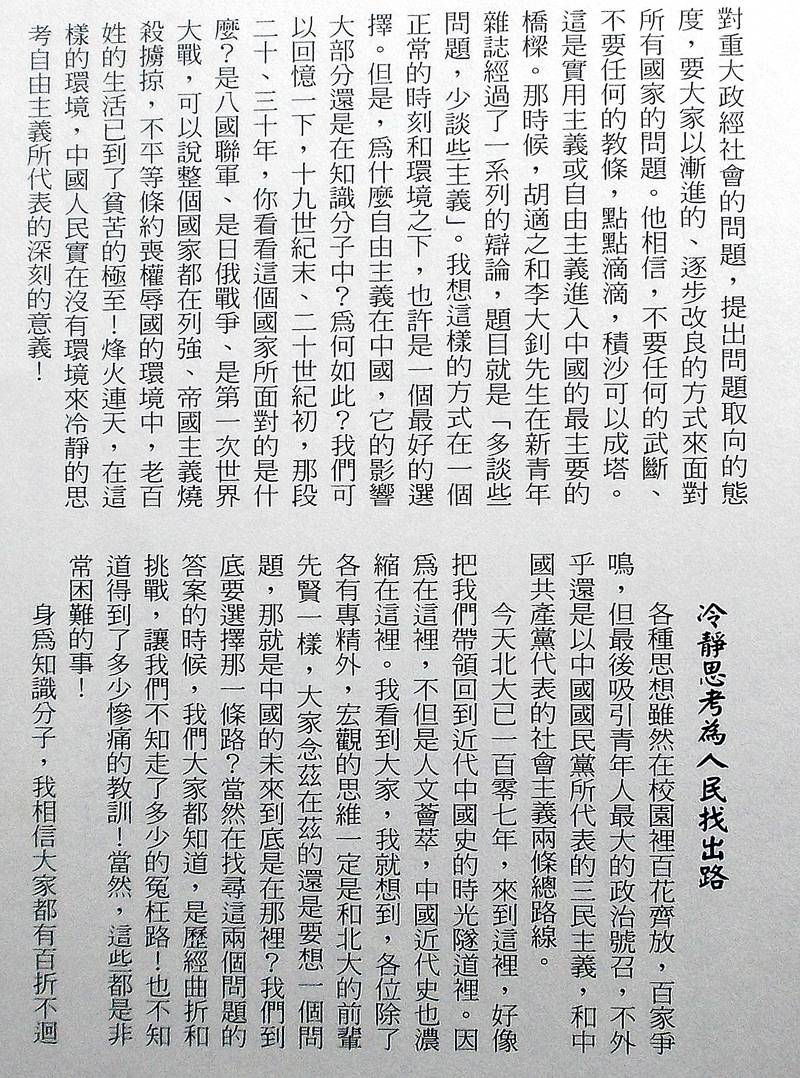 對重大政經社會的問題，提出問題取向的態
度，要大家以漸進的、逐步改良的方式來面對
所有國家的問題。他相信，不要任何的武斷、
不要任何的教條，點點滴滴，積沙可以成塔。
這是實用主義或自由主義進入中國的最主要的
橋樑。那時候，胡適之和李大釗先生在新青年
雜誌經過了一系列的辯論，題目就是「多談些
問題，少談些主義」。我想這樣的方式在一個
正常的時刻和環境之下，也許是一個最好的選
擇。但是，爲什麼自由主義在中國，它的影響
大部分還是在知識分子中？爲何如此？我們可
以回憶一下，十九世紀末、二十世紀初，那段
二十、三十年，你看看這個國家所面對的是什
麼？是八國聯軍、是日俄戰爭、是第一次世界
大戰，可以說整個國家都在列強、帝國主義燒
殺擄掠，不平等條約喪權辱國的環境中，老百
姓的生活已到了貧苦的極至！烽火連天，在這
樣的環境，中國人民實在沒有環境來冷靜的思
考自由主義所代表的深刻的意義！
冷靜思考為人民找出路
各種思想雖然在校園裡百花齊放，百家爭
鳴，但最後吸引青年人最大的政治號召，不外
乎還是以中國國民黨所代表的三民主義，和中
國共產黨代表的社會主義兩條總路線。
今天北大已一百零七年，來到這裡，好像
把我們帶領回到近代中國史的時光隧道裡。因
爲在這裡，不但是人文薈萃，中國近代史也濃
縮在這裡。我看到大家，我就想到，各位除了
各有專精外，宏觀的思維一定是和北大的前輩
先賢一樣，大家念茲在茲的還是要想一個問
題，那就是中國的未來到底是在那裡？我們到
底要選擇那一條路？當然在找尋這兩個問題的
答案的時候，我們大家都知道，是歷經曲折和
挑戰，讓我們不知走了多少的冤枉路！也不知
道得到了多少慘痛的教訓！當然，這些都是非
常困難的事！
身爲知識分子，我相信大家都有百折不迴